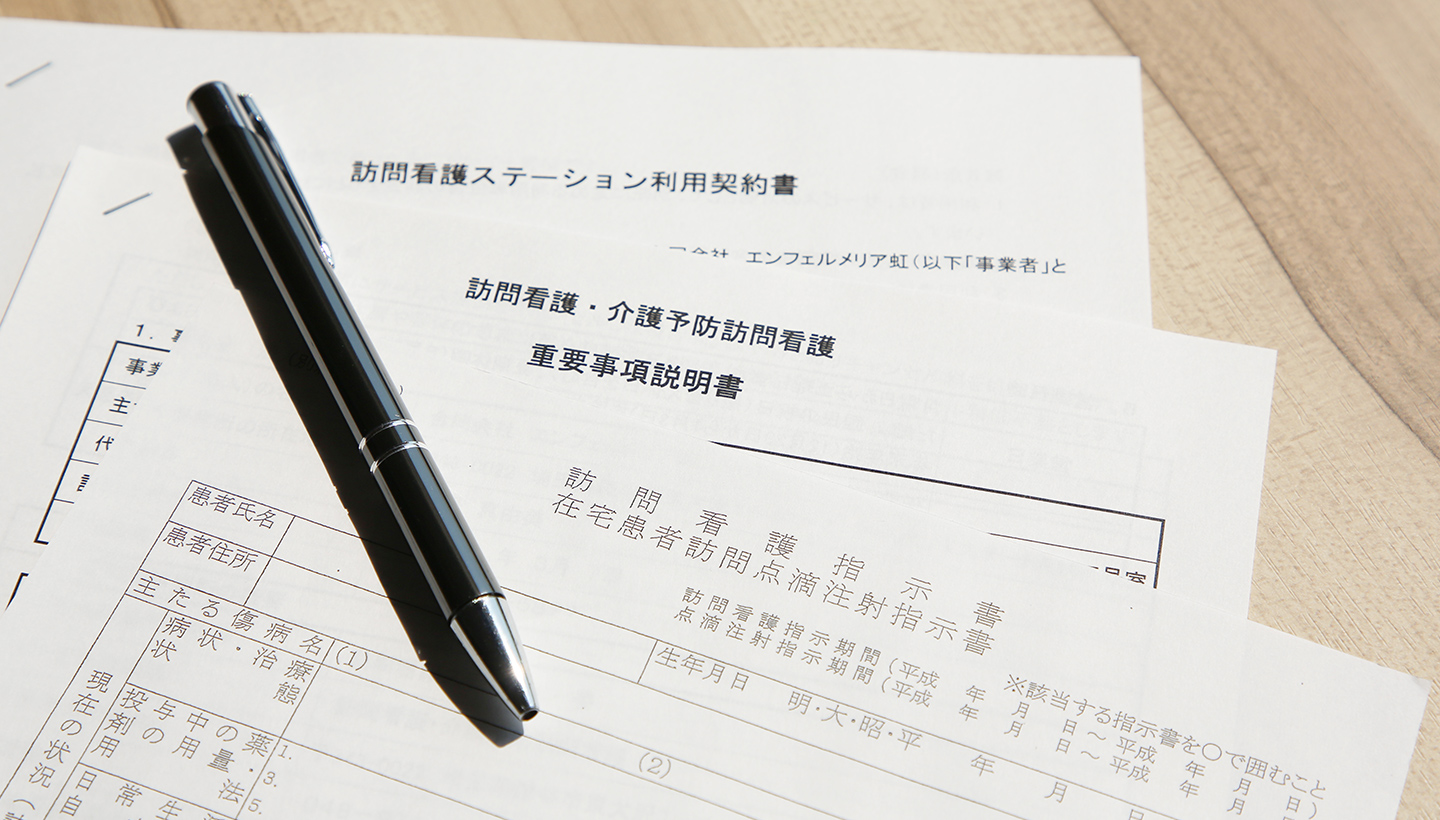 訪問看護ステーション利用契約書
会社 エンフェルメリア虹(以下「事業者」と
訪問看護・介護予防訪問看護
重要事項説明書
1.
事業
主
代
訪問看護指示書
在宅患者訪問点滴注射指示書
※該当する指示書を○で囲むこと
訪問看護指示期間(平成 年 月 日 ~ 平成 年 月 日)
点滴注射指示期間(平成 年 月 日 ~ 平成 年 月 日)
患者氏名
生年月日 明・大・昭・平 年 月 日
患者住所
主たる傷病名 (1) (2)
現在の状況(
病状・治療
状態
投与中の薬
剤の用量・
用法
1.
3.
5.
日常生活
自